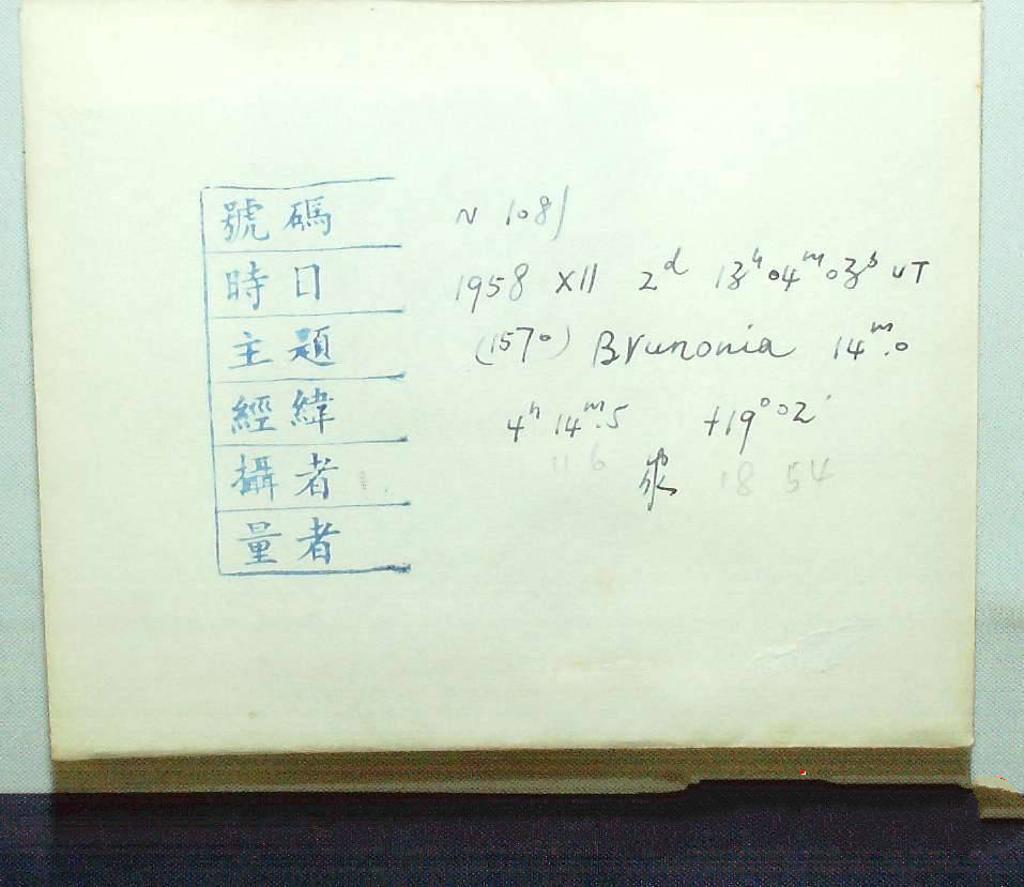 號碼 N 1081
時日 1958 XII 2ᵈ 13ʰ04ᵐ03ˢ UT
主題 (1570) Brunonia 14ᵐ.0
經緯 4ʰ 14ᵐ.5 +19°02'
11 6 18 54
攝者
量者